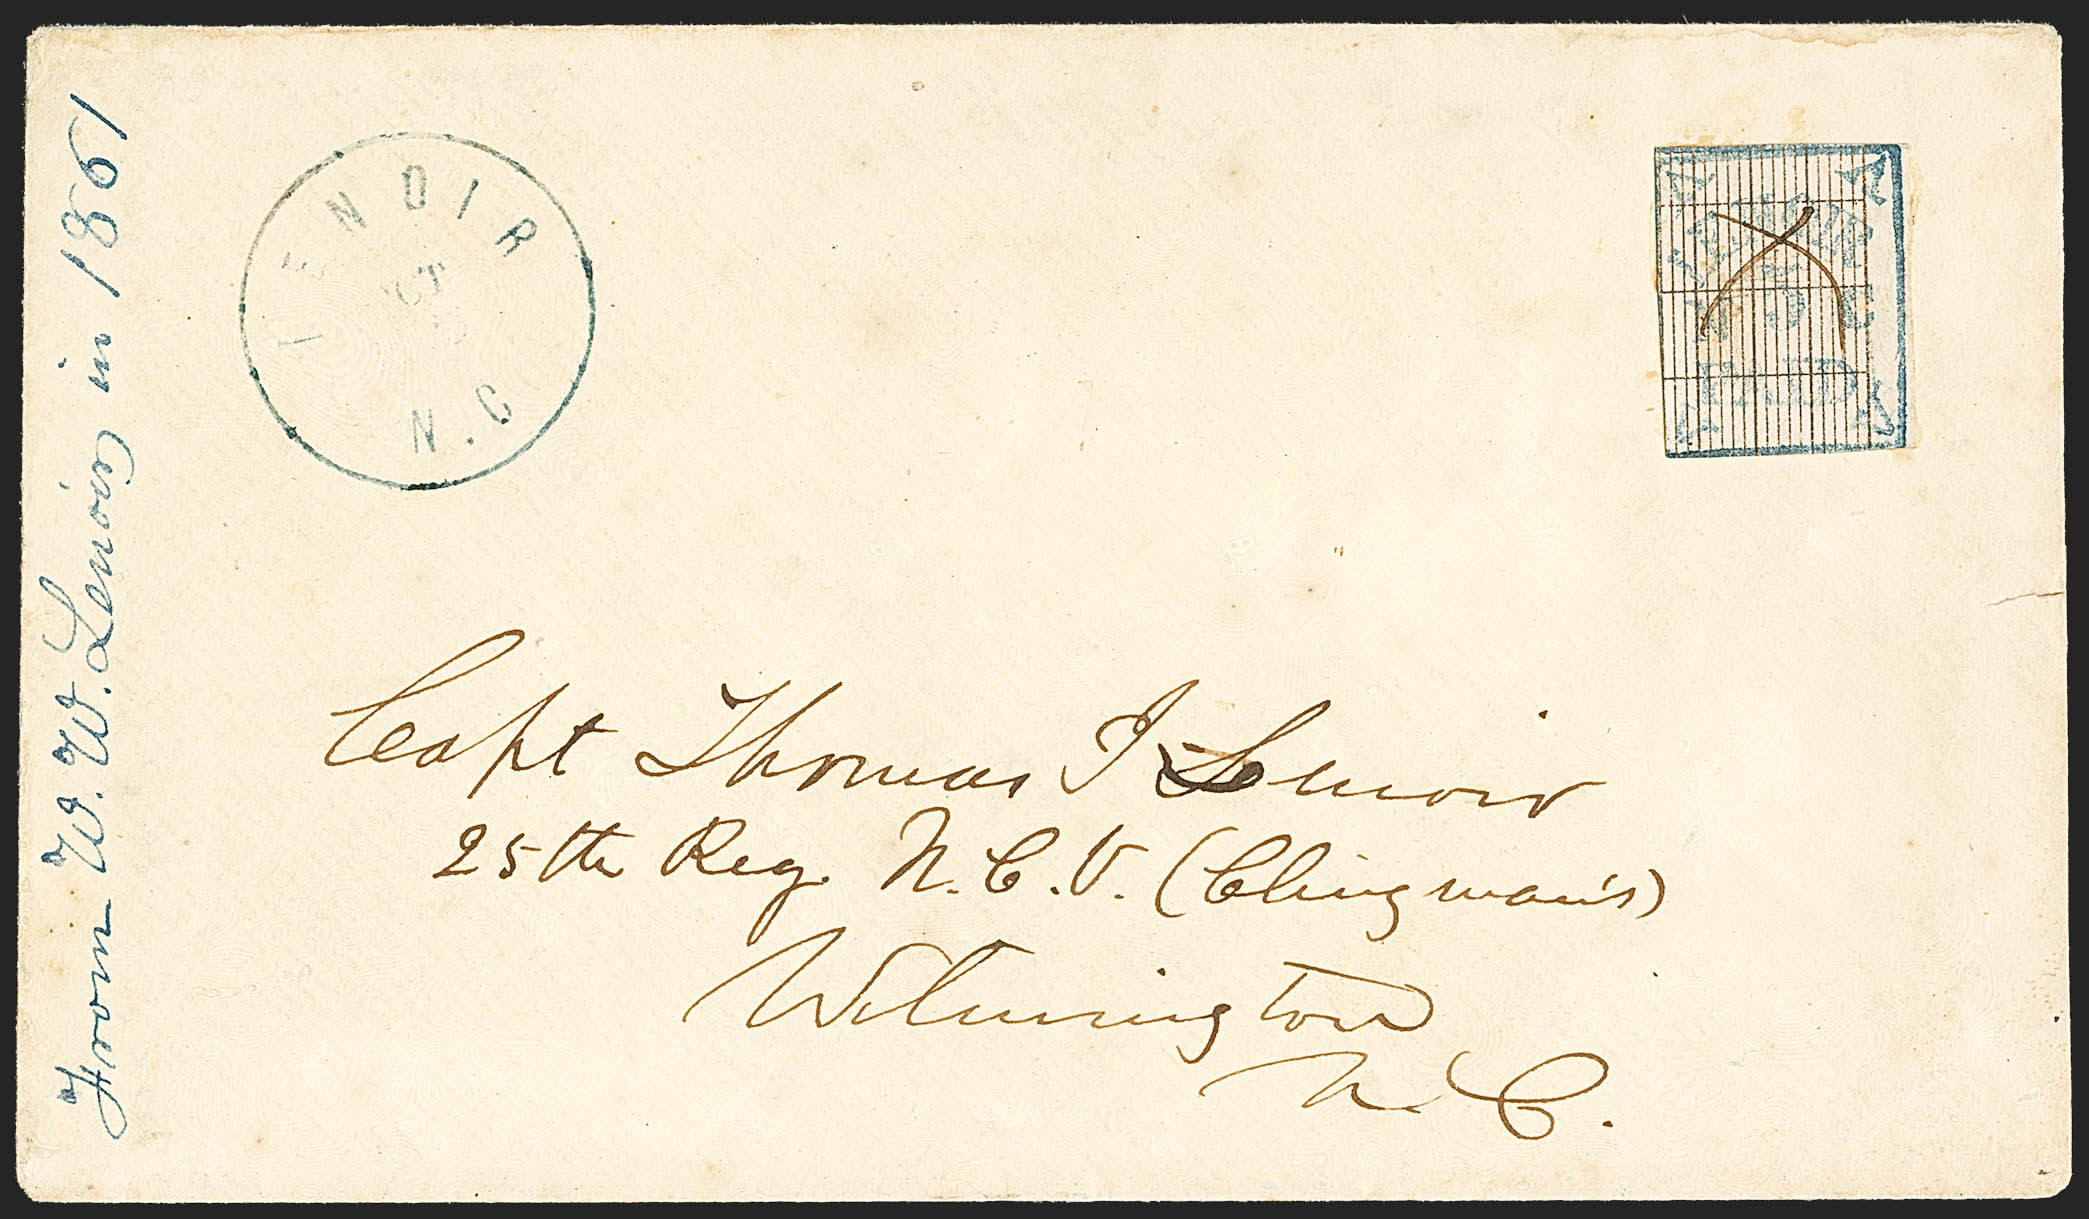 From W. W. Lenoir, in 1861
LENOIR
CT
N.C
LENOIR
N 5 C
PAID
Capt Thomas I Lenoir
25th Reg. N.C.V. (Clingman's)
Wilmington
N C.